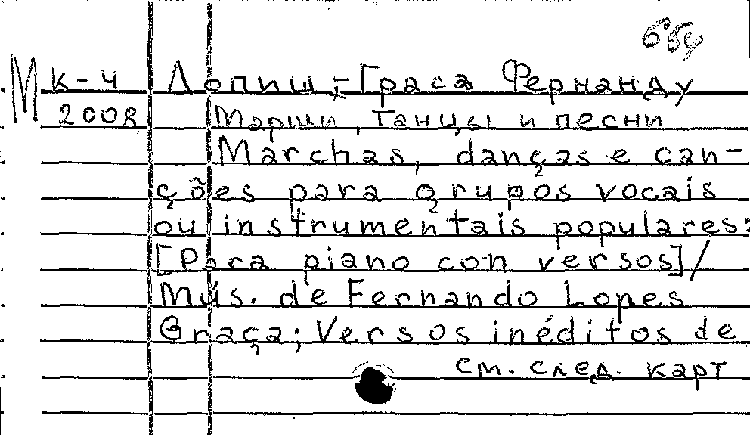 М К-4 Лопиш-Граса Фернанду
2008 Марши, танцы и песни
Marchas, danças e can-
ções para grupos vocais
ou instrumentais populares:
[Para piano con versos]/
Mús. de Fernando Lopes
Graça; Versos inéditos de
см. след. карт